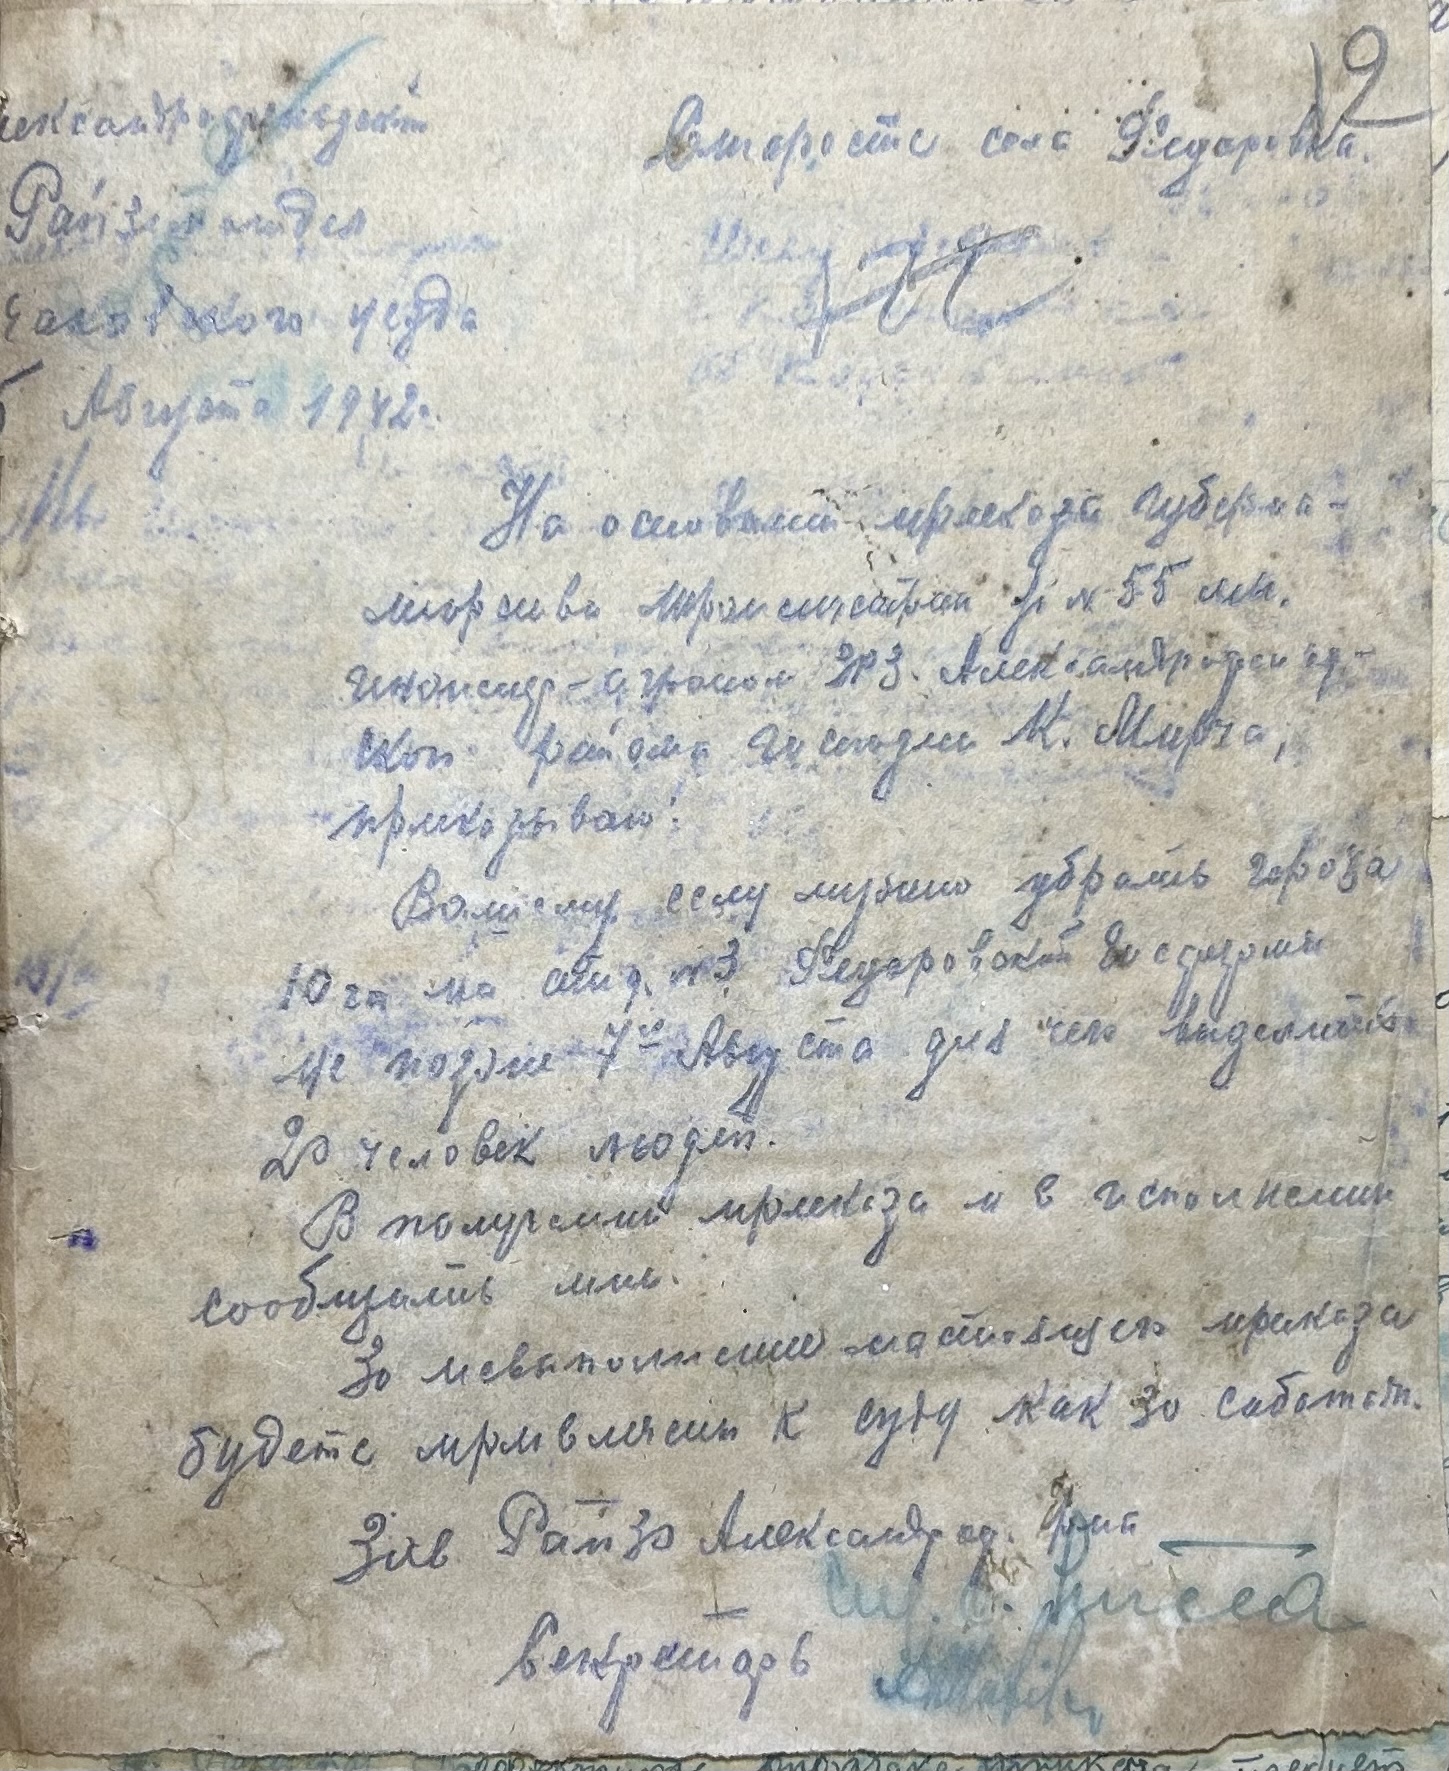 12
лександродарьдскій
Райземотдел
чаковского уезда
5 Августа 1942г.
Старосте села Федаровка.
На основании приказа Губерна-
торства Транснистрии за № 55 ин.
инженер-агроном ЗРЗ. Александродар-
ског района Господин К. Мирча,
приказываю:
Вашему селу нужно убрать гороха
10 га на отд. №3 Федаровской
не позже 7го Августа для чего выделить
20 человек людей.
В получении приказа и в исполнении
сообщить мне.
За невыполнение настоящего приказа
будете привлечены к суду как за саботаж.
Зав РайЗО Александрод. р-на
Секретарь